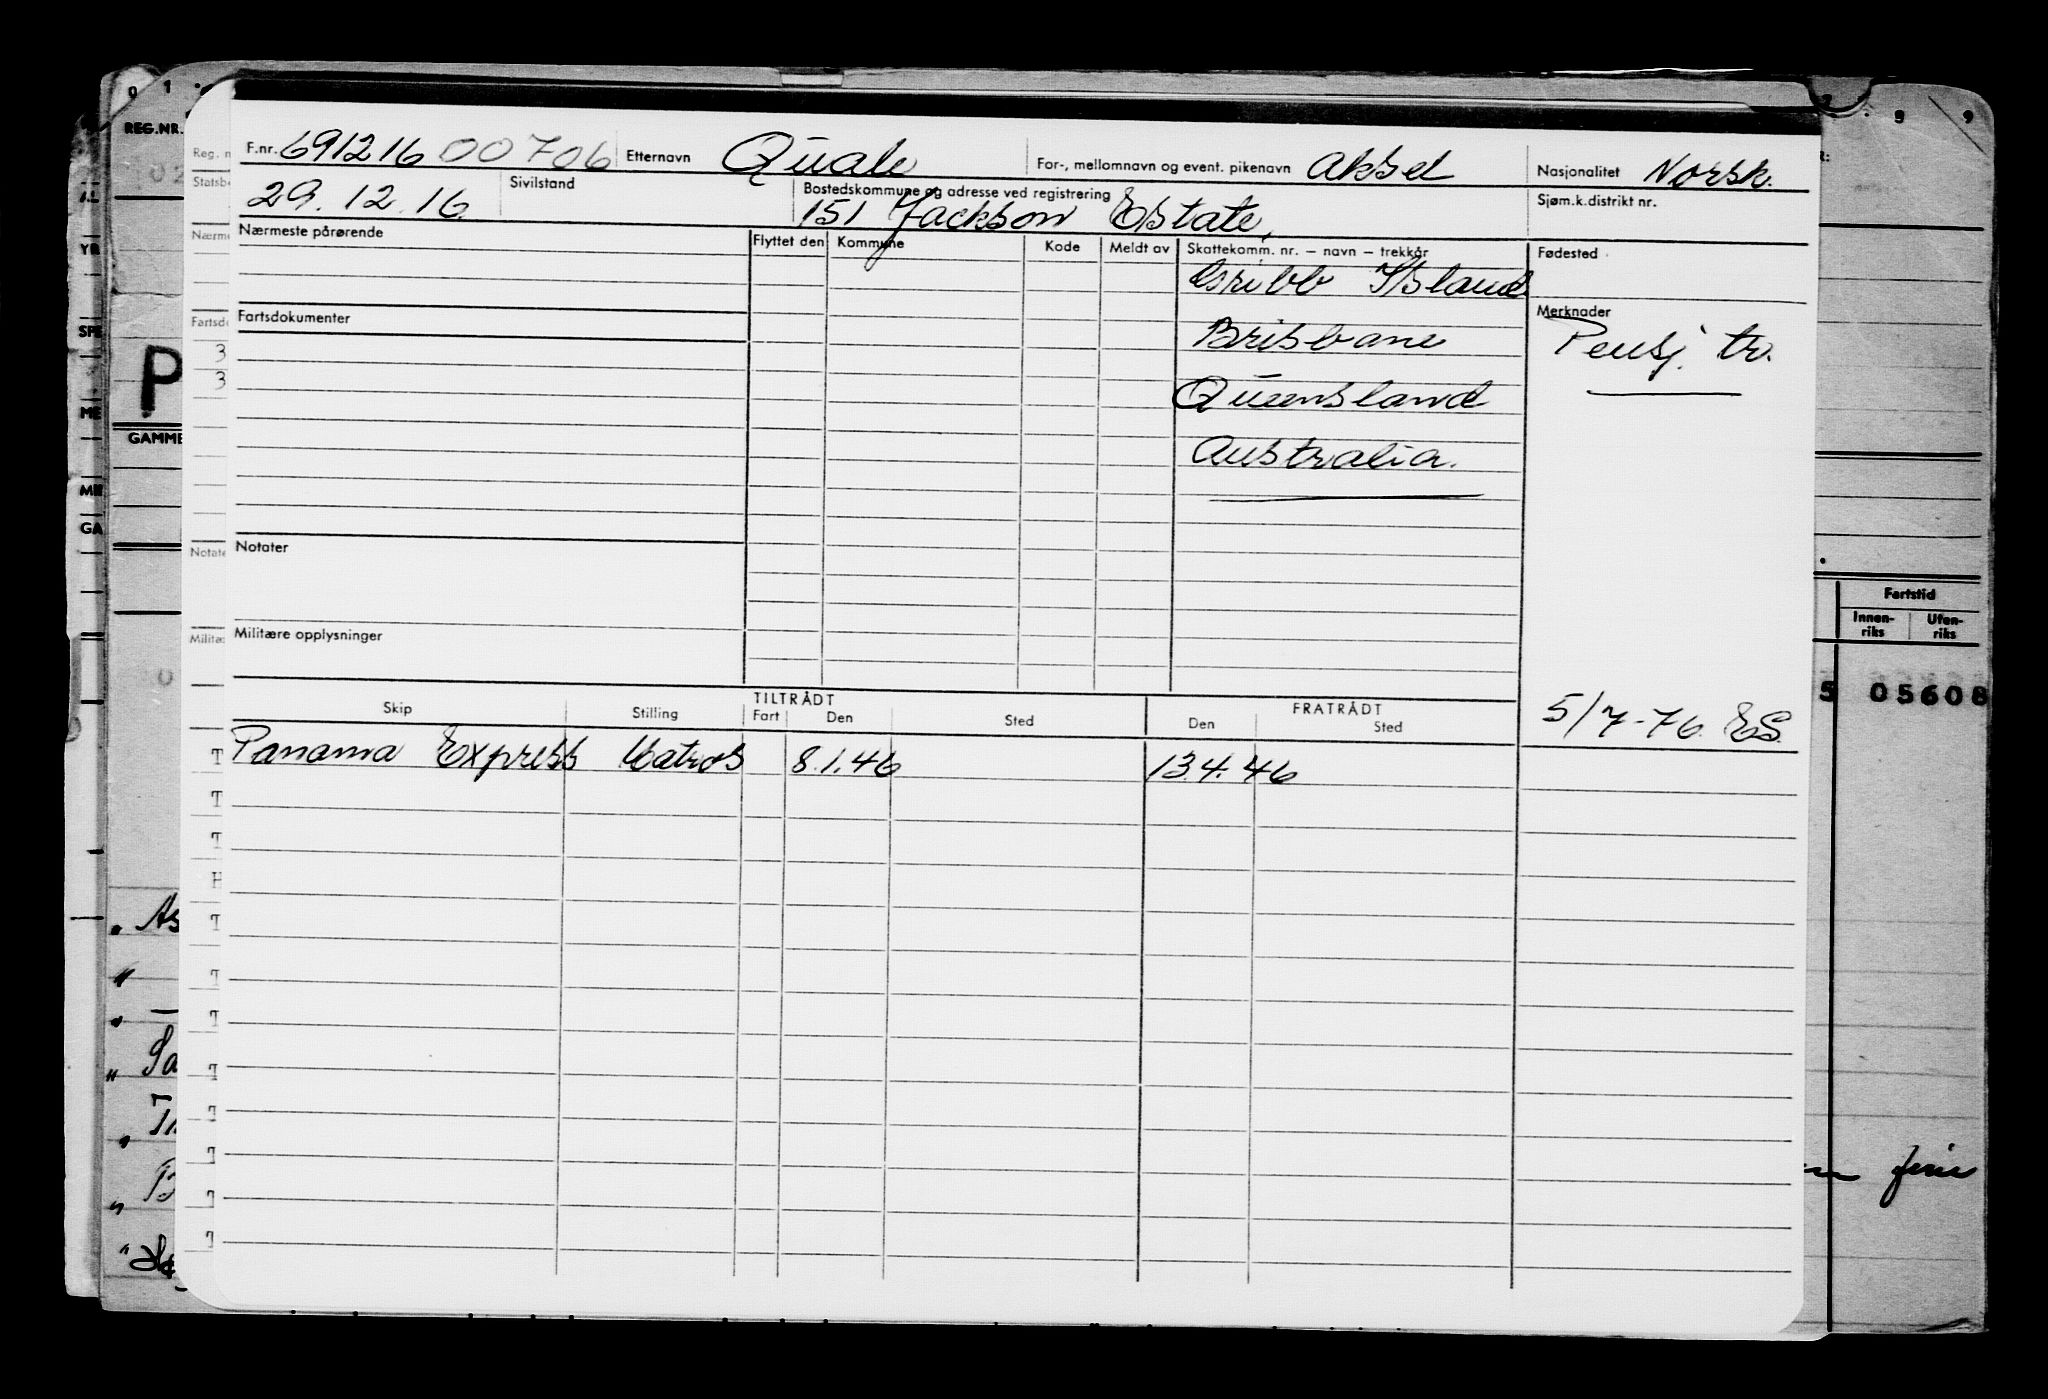 F.nr. 691216 00706 Etternavn Quale For-, mellomnavn og event. pikenavn Aksel Nasjonalitet Norsk.
29.12.16 Sivilstand Bostedskommune og adresse ved registrering Sjøm.k.distrikt nr.
151 Jackson Estate,
Nærmeste pårørende Flyttet den Kommune Kode Meldt av Skattekomm. nr. – navn – trekkår Fødested
Gribb Island
Fartsdokumenter Merknader
Brisbane Pensj. tr.
Queensland
Australia.
Notater
Militære opplysninger
TILTRÅDT FRATRÅDT
Skip Stilling Fart Den Sted Den Sted
5/7-76 ES.
Panama Express Matros 8.1.46 13.4.46
REG.NR.
GAMME
Fartstid
Innen-riks Uten-riks
5 05608